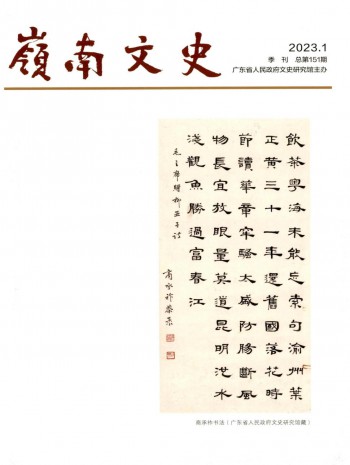 嶺南文史
2023.1
季 刊 总第151期
广东省人民政府文史研究馆主办
飲茶粵海未能忘索句渝州葉
正黃三十一年還舊國落花時
節讀華章牢騷太盛防腸斷風
物長宜放眼量莫道昆明池水
淺觀魚勝過富春江
毛主席贈柳亞子詩
商承祚恭录
商承祚书法(广东省人民政府文史研究馆藏)